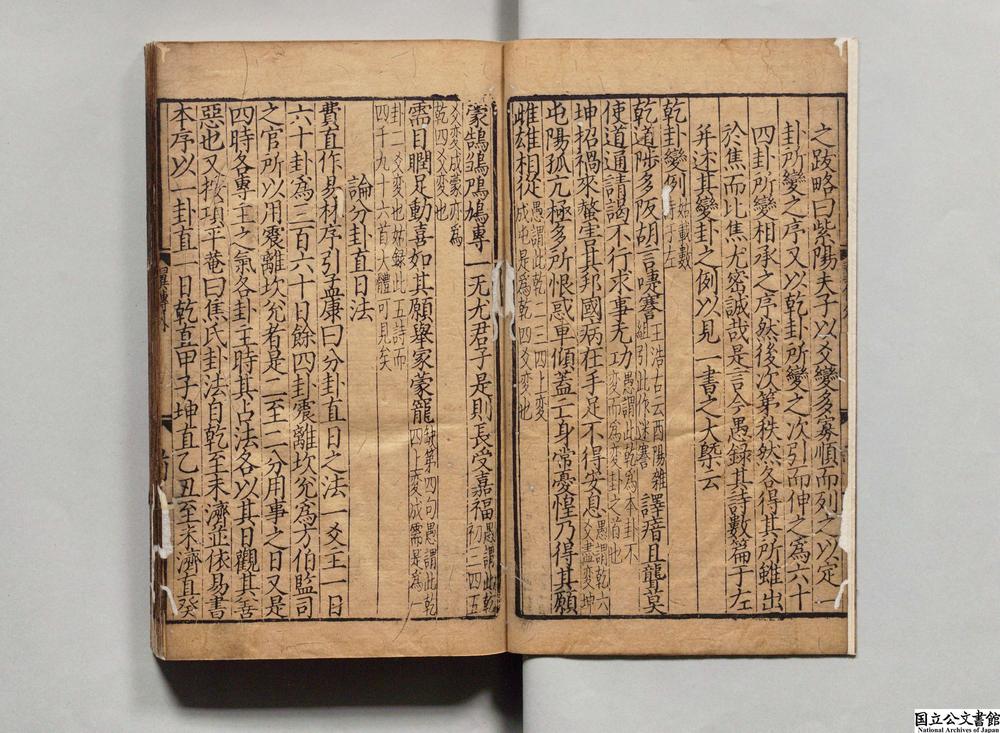 之跋略曰紫陽夫子以爻變多寡順而列之以定一
卦所變之序又以乾卦所變之次引而伸之為六十
四卦所變相承之序然後次第秩然各得其所雖出
於焦而比焦尤密誠哉是言今愚録其詩數篇于左
并述其變卦之例以見一書之大槩云
乾卦變例姑載數詩于左
乾道陟多阪胡言嘜謇王浩古云酉陽雜組引此作迷謇譯瘖且聾莫
使道通請謁不行求事无功愚謂此乾為本卦不変而為変卦之首也
坤招禍來螫害其邦國病在手足不得安息愚謂乾六爻盡変坤
屯陽孤亢極多所恨惑車傾蓋亡身常憂惶乃得其願
雌雄相從愚謂此乾二三四上変成屯是為乾四爻変也
蒙鵠鴆專一无尤君子是則長受嘉福愚謂此乾初三四五
爻変成蒙亦為乾四爻変也
需目瞤足動喜如其願舉家蒙寵缺第四句愚謂此乾四上変成需是為一
卦二爻変也姑録此五詩而四千九十六首大體可見矣
論分卦直日法
費直作易林序引孟康曰分卦直日之法一爻主一日
六十卦為三百六十日餘四卦震離坎兌為方伯監司
之官所以用震離坎兌者是二至二分用事之日又是
四時各專王之氣各卦主時其占法各以其日觀其善
惡也又按項平菴曰焦氏卦法自乾至未濟並依易書
本序以一卦直一日乾直甲子坤直乙丑至未濟直癸
国立公文書館
National Archives of Japan